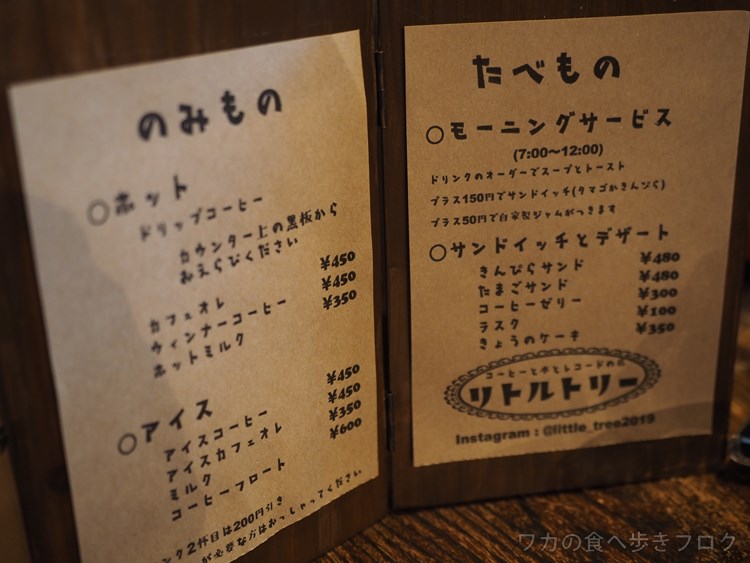 のみもの
○ホット
ドリップコーヒー
カウンター上の黒板から
おえらびください
カフェオレ ¥450
ウィンナーコーヒー ¥450
ホットミルク ¥350
○アイス
アイスコーヒー ¥450
アイスカフェオレ ¥450
ミルク ¥350
コーヒーフロート ¥600
ンク2杯目は200円引き
が必要な方はおっしゃってください
たべもの
○モーニングサービス
(7:00〜12:00)
ドリンクのオーダーでスープとトースト
プラス150円でサンドイッチ(タマゴかきんぴら)
プラス50円で自家製ジャムがつきます
○サンドイッチとデザート
きんぴらサンド ¥480
たまごサンド ¥480
コーヒーゼリー ¥300
ラスク ¥100
きょうのケーキ ¥350
コーヒーと本とレコードの店
リトルトリー
Instagram : @little_tree2019
ワカの食べ歩きブログ